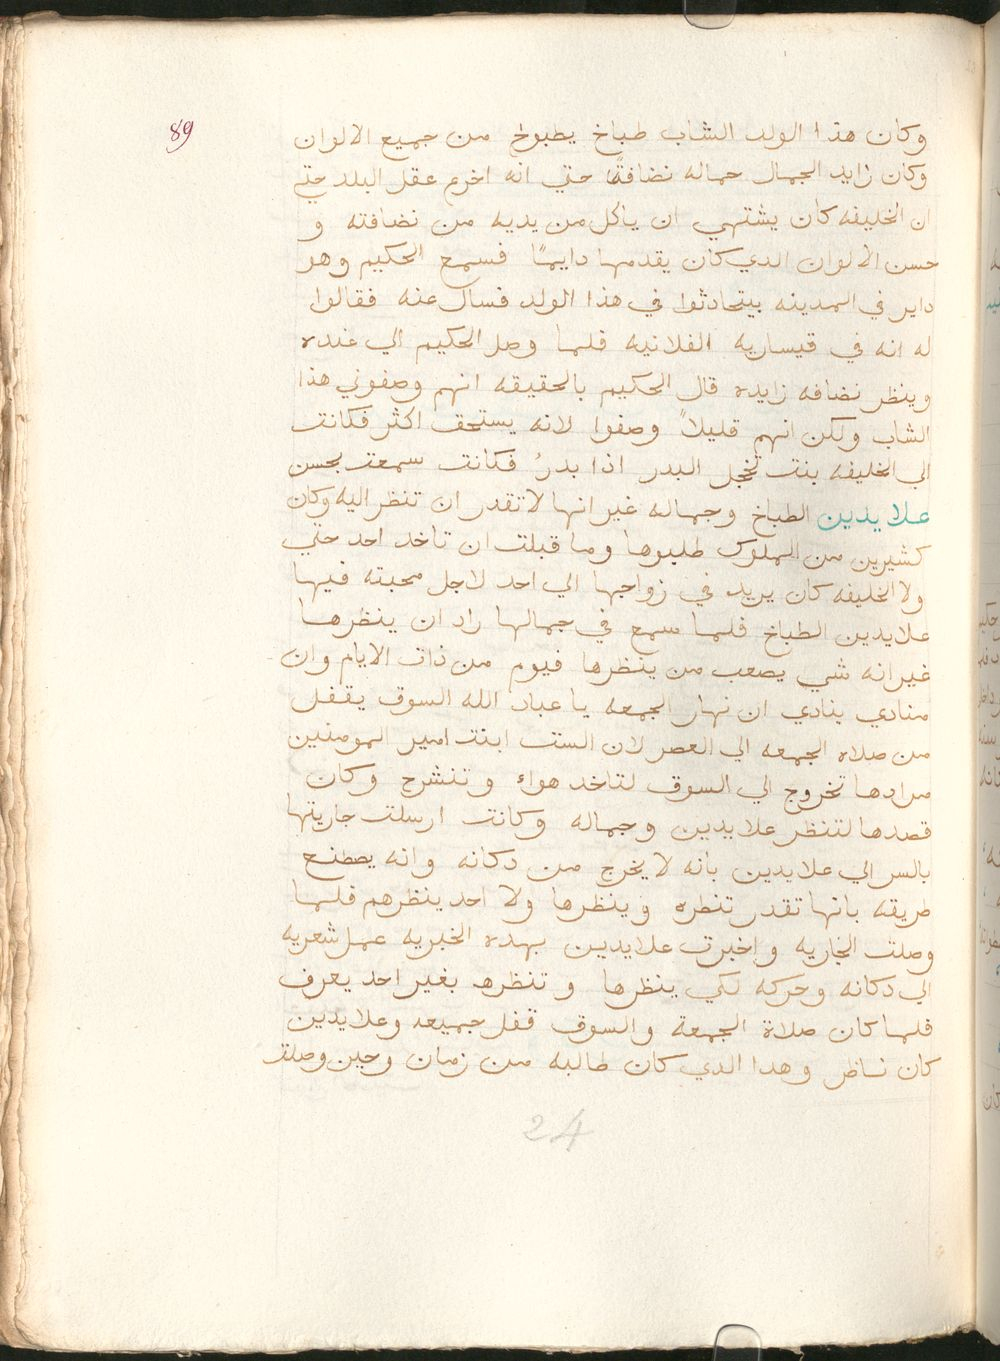 89
وكان هذا الولد الشاب طباخ يطبوخ من جميع الالوان
وكان زايد الجمال حماله نضافةً حتي انه اخرم عقل البلد حتي
ان الخليفه كان يشتهي ان ياكل من يديه من نضافته و
حسن الالوان الدي كان يقدمها دايمًا فسمع الحكيم وهو
داير في المدينه بيتحادثوا في هذا الولد فسال عنه فقالوا
له انه في قيساريه الفلانيه فلما وصل الحكيم الي عنده
وينظر نضافه زايده قال الحكيم بالحقيقه انهم وصفوني هذا
الشاب ولكن انهم قليلاً وصفوا لانه يستحق اكثر فكانت
الي الخليفه بنت تخجل البدر اذا بدرُ فكانت سمعت بحسن
علايدين الطباخ وجماله غير انها لا تقدر ان تنظر اليه وكان
كشيرين من الملوك طلبوها وما قبلت ان تاخد احد حتي
ولا الخليفه كان يريد في زواجها الي احد لاجل محبته فيها
علايدين الطباخ فلما سمع في جمالها راد ان ينظرها
غير انه شي يصعب من ينظرها فيوم من ذات الايام وان
منادي ينادي ان نهار الجمعه يا عباد الله السوق يقفل
من صلاه الجمعه الي العصر لان الست ابنت امير المومنين
مرادها تخروج الي السوق لتاخد هواء وتنشرح وكان
قصدها لتنظر علايدين وجماله وكانت ارسلت جاريتها
بالسر الي علايدين بانه لا يخرج من دكانه وانه يصطنع
طريقه بانها تقدر تنطره وينظرها ولا احد ينظرهم فلما
وصلت الجاريه واخبرت علايدين بهده الخبريه عمل شعريه
الي دكانه وحركه لكي ينظرها وتنظره بغير احد يعرف
فلما كان صلاة الجمعة والسوق قفل جميعه وعلايدين
كان ناظر وهدا الدي كان طالبه من زمان وحين وصلت
24